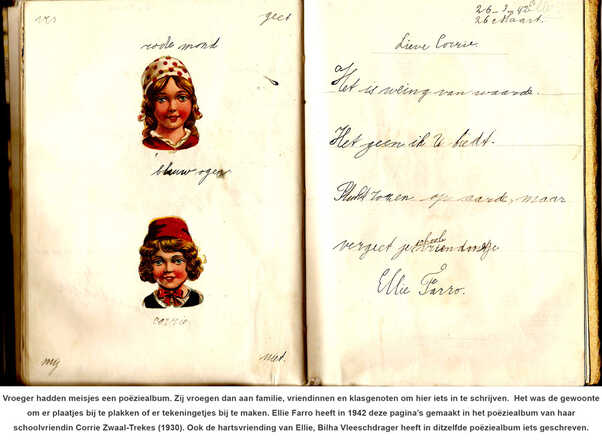 ver
geet
roode mond
blauw ogen
corrie
mij
niet.
26-3-42
26 Maart.
Lieve Corrie.
Het is weinig van waarde.
Het geen ik U biedt.
Pluk rozen op aarde, maar
vergeet je schoolvriendinetje
Ellie Farro.
Vroeger hadden meisjes een poëziealbum. Zij vroegen dan aan familie, vriendinnen en klasgenoten om hier iets in te schrijven. Het was de gewoonte
om er plaatjes bij te plakken of er tekeningetjes bij te maken. Ellie Farro heeft in 1942 deze pagina's gemaakt in het poëziealbum van haar
schoolvriendin Corrie Zwaal-Trekes (1930). Ook de hartsvriending van Ellie, Bilha Vleeschdrager heeft in ditzelfde poëziealbum iets geschreven.